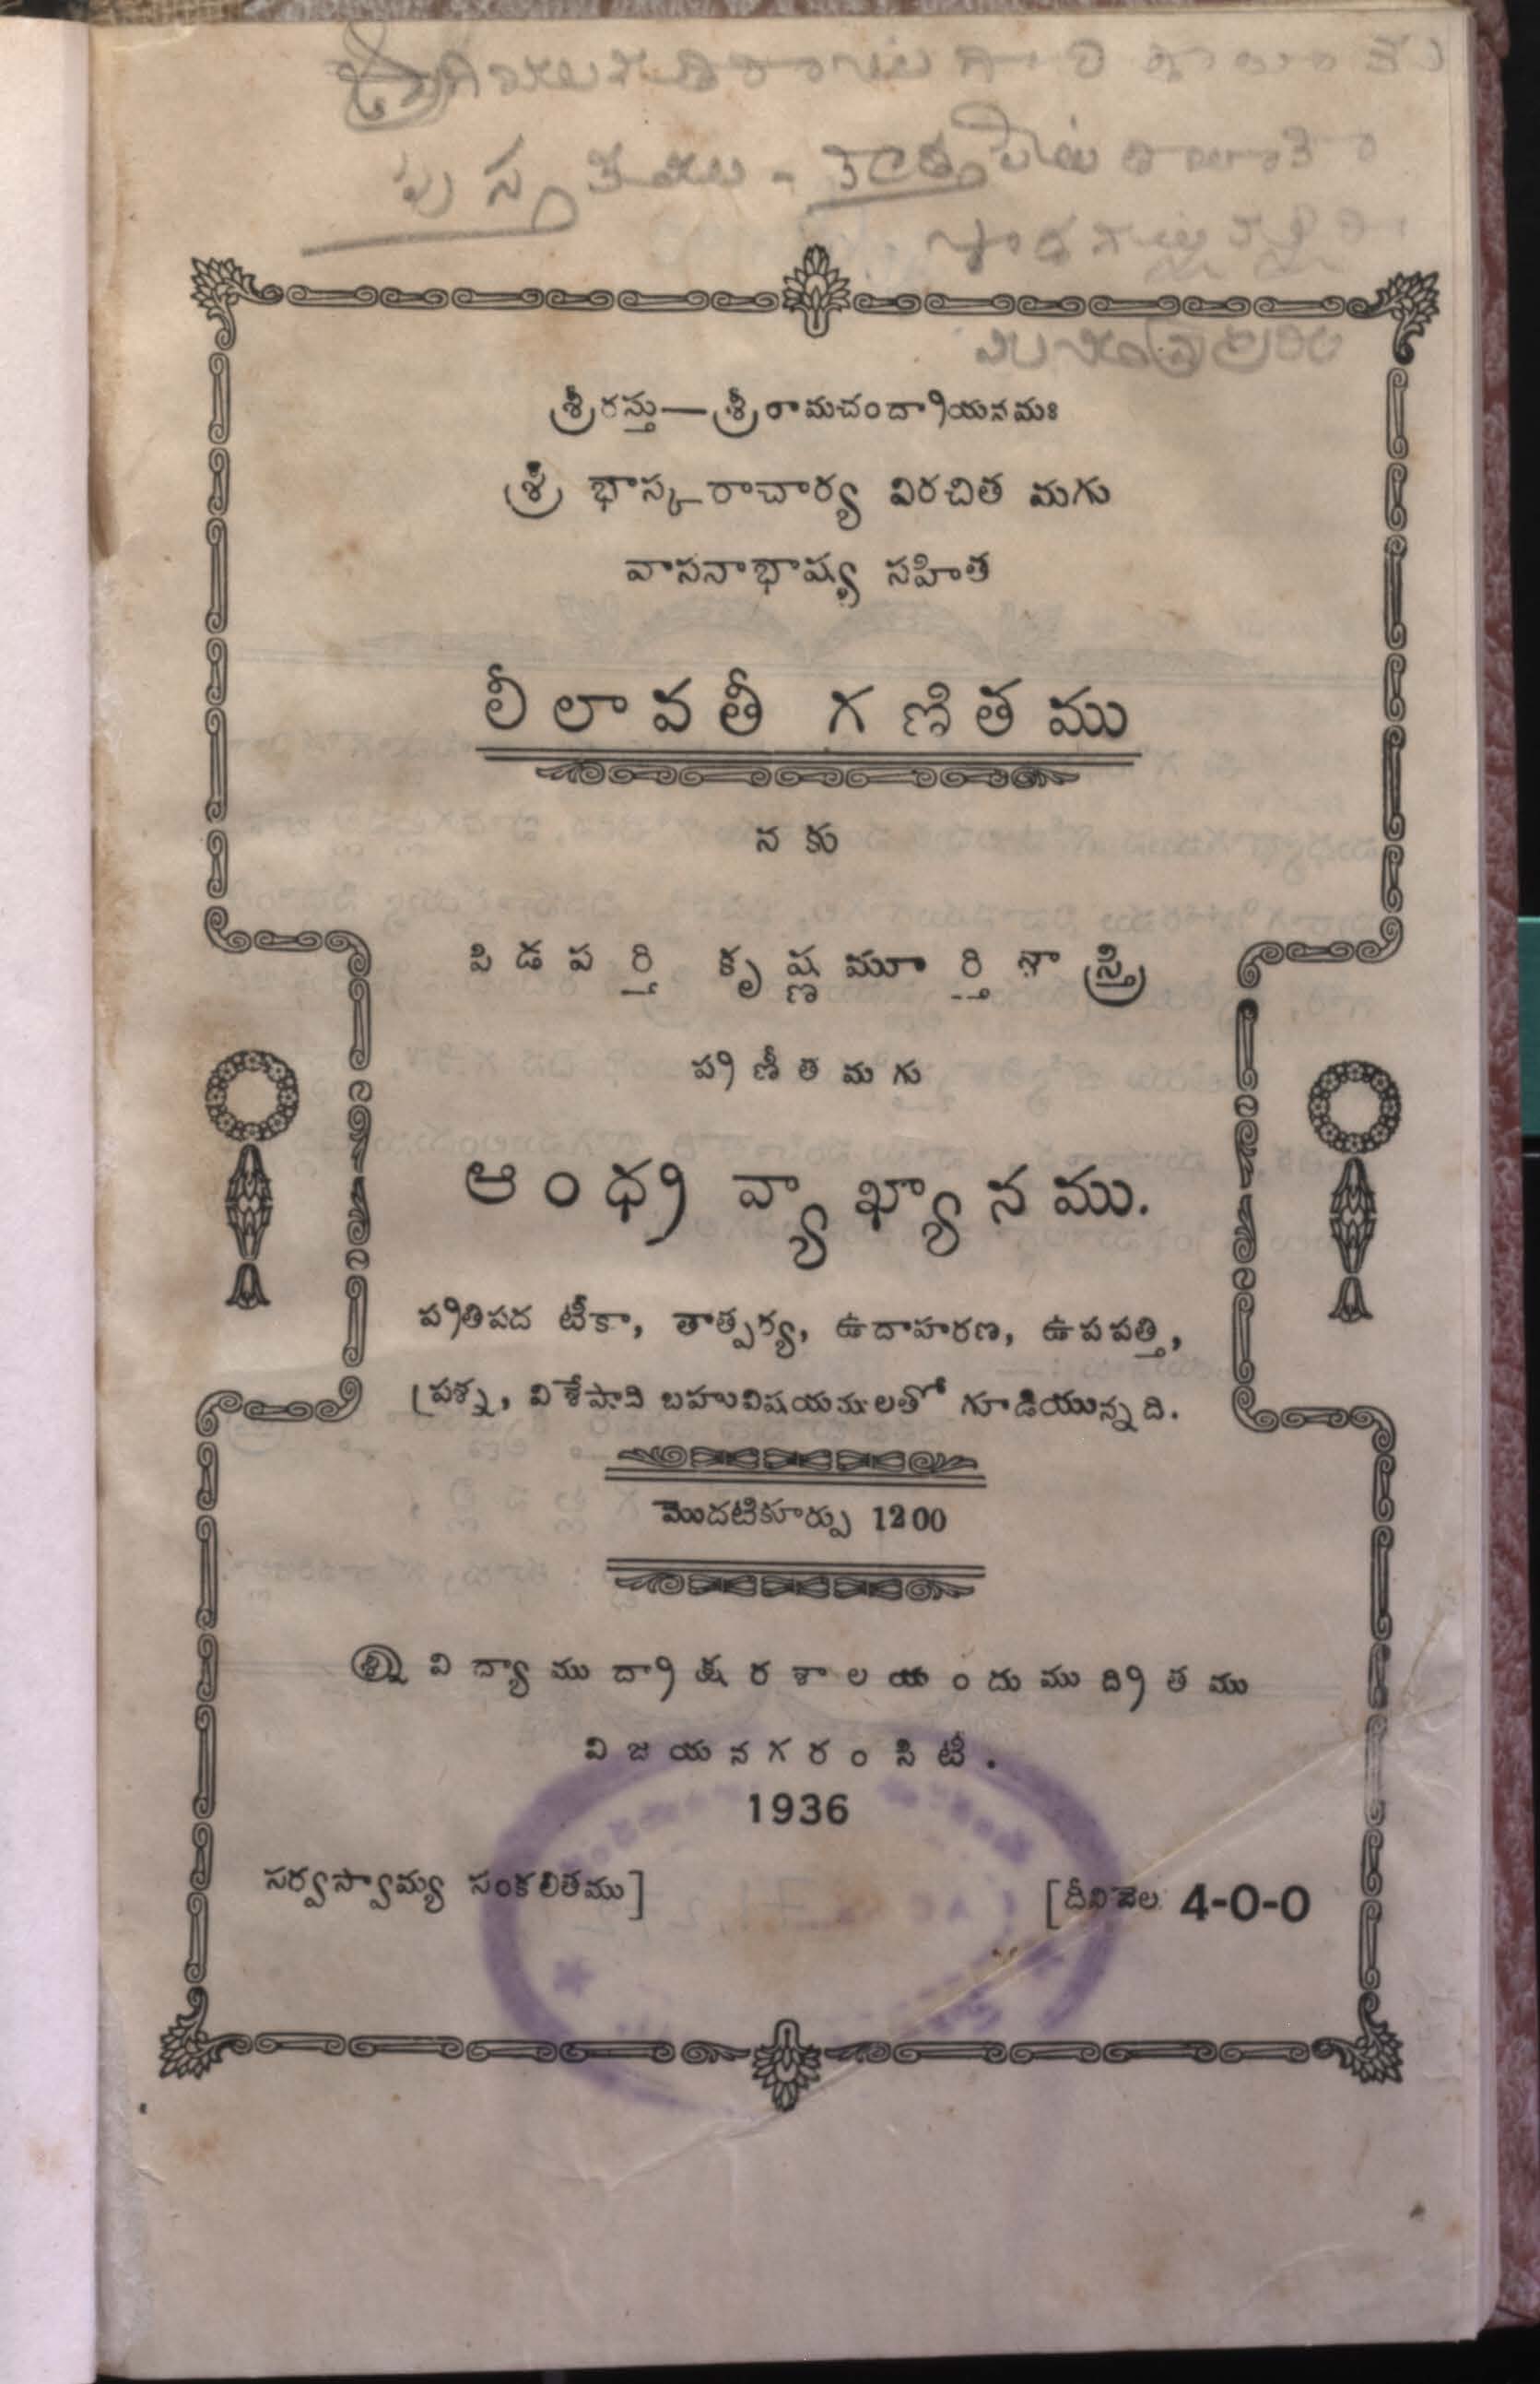 పుస్తకములు -
శ్రీరస్తు — శ్రీరామచంద్రాయనమః
శ్రీ భాస్కరాచార్య విరచిత మగు
వాసనాభాష్య సహిత
లీలావతీ గణితము
నకు
పిడపర్తి కృష్ణమూర్తిశాస్త్రి
ప్రణీతమగు
ఆంధ్ర వ్యాఖ్యానము.
ప్రతిపద టీకా, తాత్పర్య, ఉదాహరణ, ఉపపత్తి,
ప్రశ్న, విశేషాది బహువిషయములతో గూడియున్నది.
మొదటికూర్పు 1200
శ్రీ విద్యాముద్రాక్షరశాలయందుముద్రితము
విజయనగరంసిటీ.
1936
సర్వస్వామ్య సంకలితము]
[దీనివెల 4-0-0